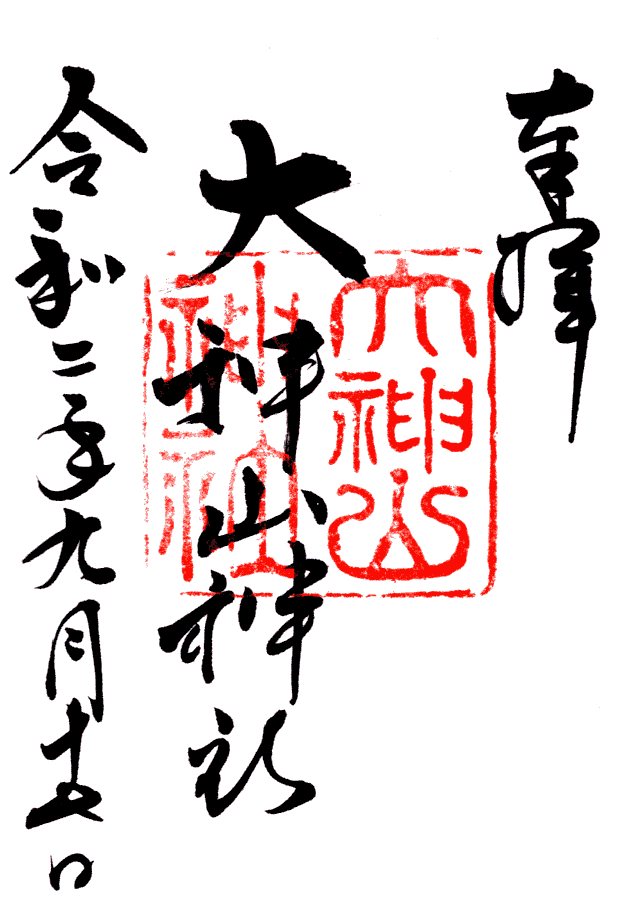 奉拝
大神山神社
大神山
神社
令和二年九月十五日